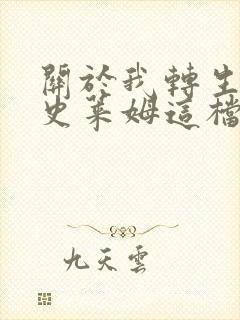 關於我轉生
史萊姆這檔
九天雲